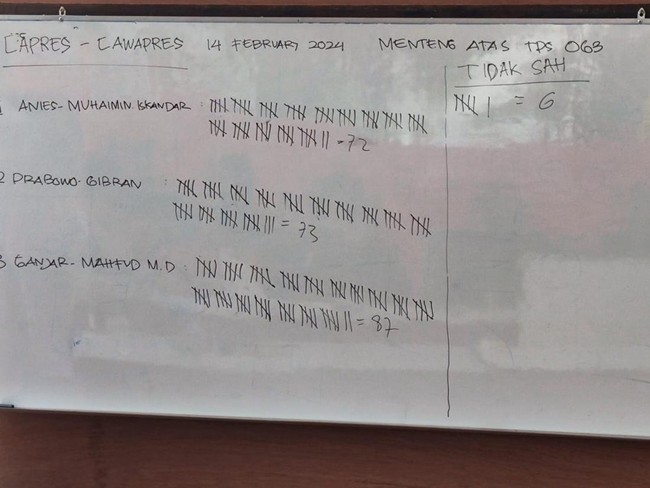 CAPRES - CAWAPRES 14 FEBRUARY 2024 MENTENG ATAS TPS 063
TIDAK SAH
= 6
1 ANIES- MUHAIMIN. ISKANDAR :
= 72
2 PRABOWO- GIBRAN :
= 73
3 GANJAR- MAHFUD M.D :
= 87